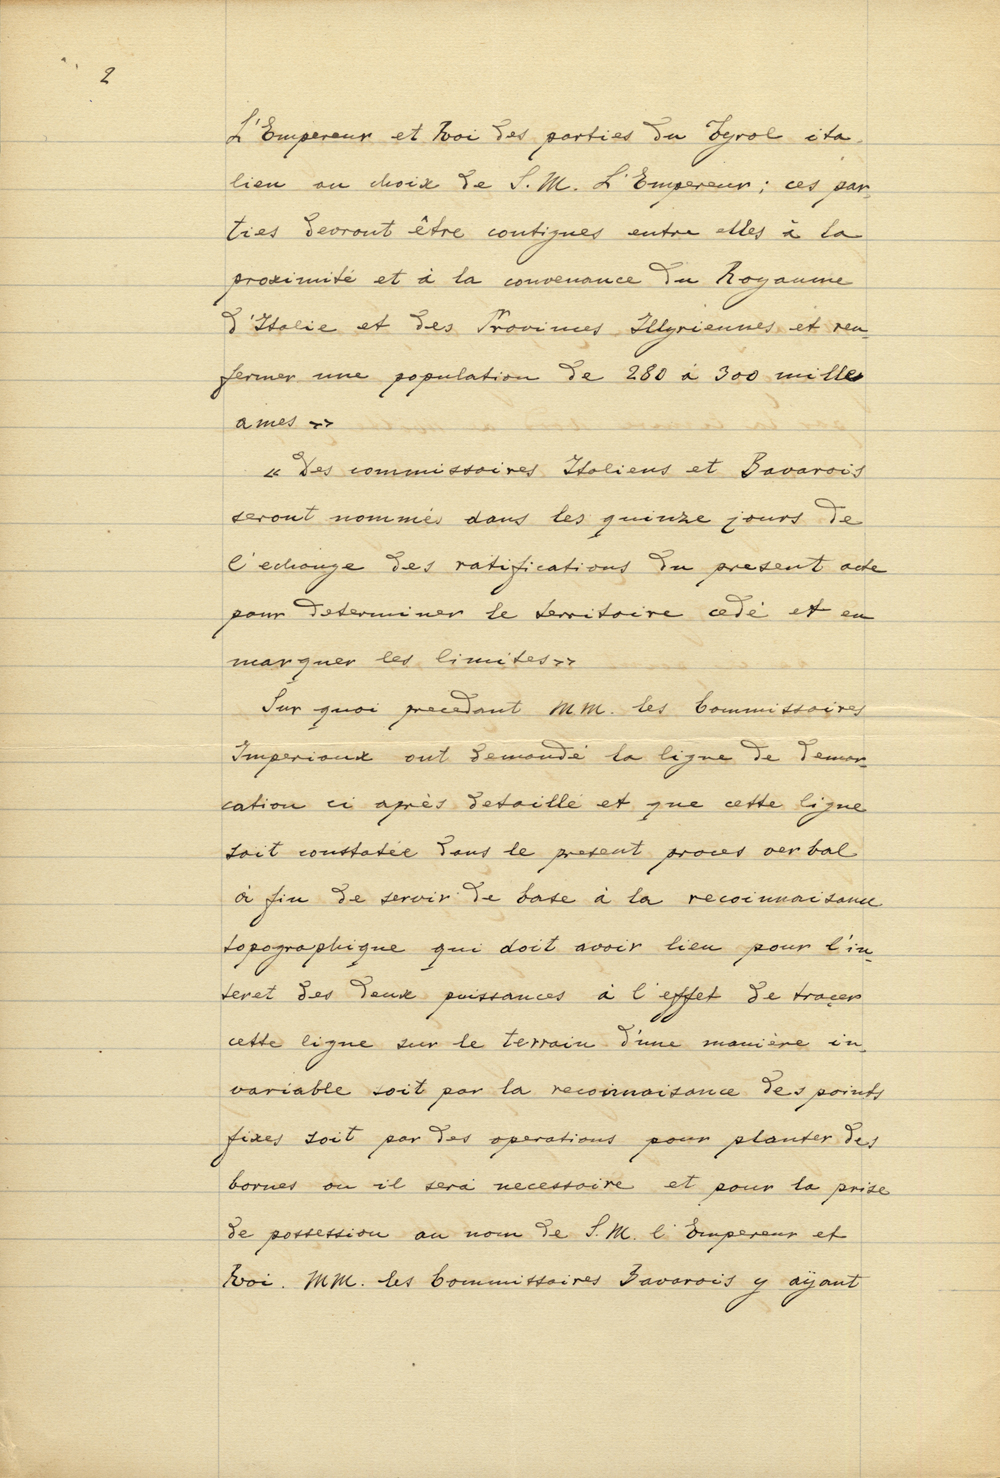 2
L'Empereur et Roi des parties du Tyrol ita-
lien au choix de S. M. L'Empereur; ces par-
ties devront être contigues entre elles à la
proximité et à la convenance du Royaume
d'Italie et des Provinces Illyriennes et ren-
fermer une population de 280 à 300 mille
ames »
« Des commissaires Italiens et Bavarois
seront nommés dans les quinze jours de
l'echange des ratifications du present acte
pour determiner le territoire cedé et en
marquer les limites»
Sur quoi precedant MM. les Commissaires
Imperiaux ont demandé la ligne de demar-
cation ci après detaillé et que cette ligne
soit constatée dans le present proces verbal
à fin de servir de base à la recoinnaisance
topographique qui doit avoir lieu pour l'in-
teret des deux puissances à l'effet de traçer
cette ligne sur le terrain d'une manière in-
variable soit par la reconnaisance des points
fixes soit par des operations pour planter des
bornes ou il sera necessaire et pour la prise
de possession au nom de S. M. l'Empereur et
Roi. MM. les Commissaires Bavarois y aÿant